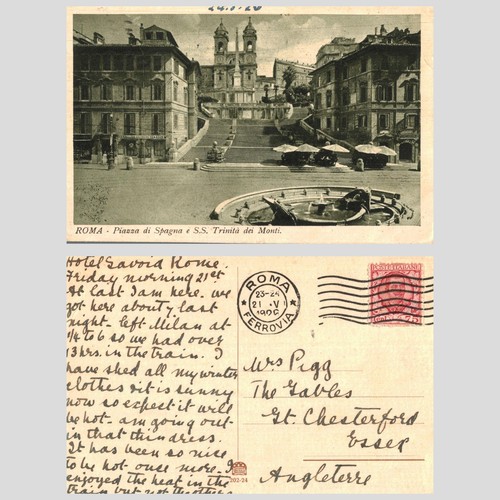 ROMA - Piazza di Spagna e S.S. Trinità dei Monti.
Hotel Savoia Rome.
Friday morning 21st
At last I am here. we
got here about 7 last
night. left Milan at
1/4 to 6 so we had over
13 hrs. in the train. I
have shed all my winter
clothes & it is sunny
now so expect it will
be hot. am going out
in that thin dress.
It has been so nice
to be hot once more. I
enjoyed the heat in the
train but not the others
ROMA
23-24
21 V
FERROVIA
POSTE ITALIANE
Mrs Pigg
The Gables
Gt. Chesterford
Essex
Angleterre
202-24